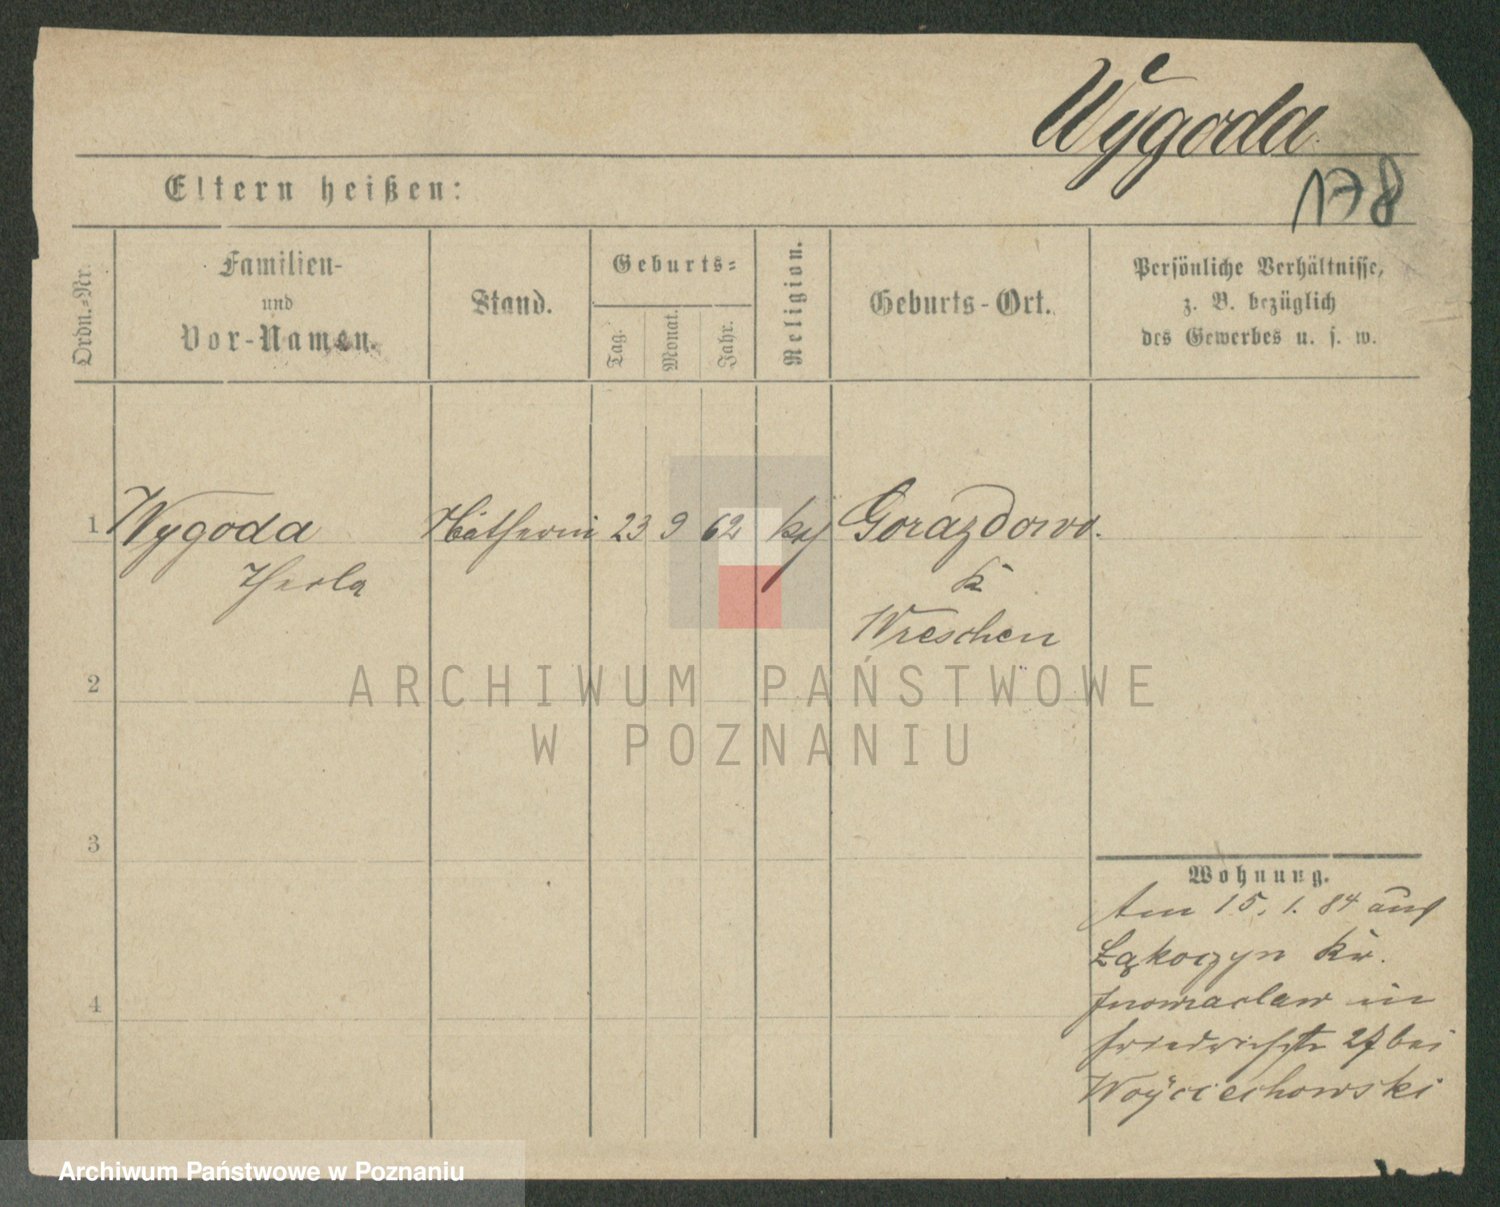 Wygoda
178
Eltern heißen:
Ordn.-Nr.
Familien-
und
Vor-Namen.
Stand.
Geburts-
Tag.
Monat.
Jahr.
Religion.
Geburts-Ort.
Persönliche Verhältnisse,
z. B. bezüglich
des Gewerbes u. s. w.
1 Wygoda Näherin 23 9 62 kath Gorazdowo.
Thecla
K
Wreschen
2
3
4
Wohnung.
Am 15. 1. 84 aus
Łąkoczyn Kr.
Inowraclaw in
Friedrichstr 27 bei
Woÿciechowski
ARCHIWUM PAŃSTWOWE
W POZNANIU
Archiwum Państwowe w Poznaniu